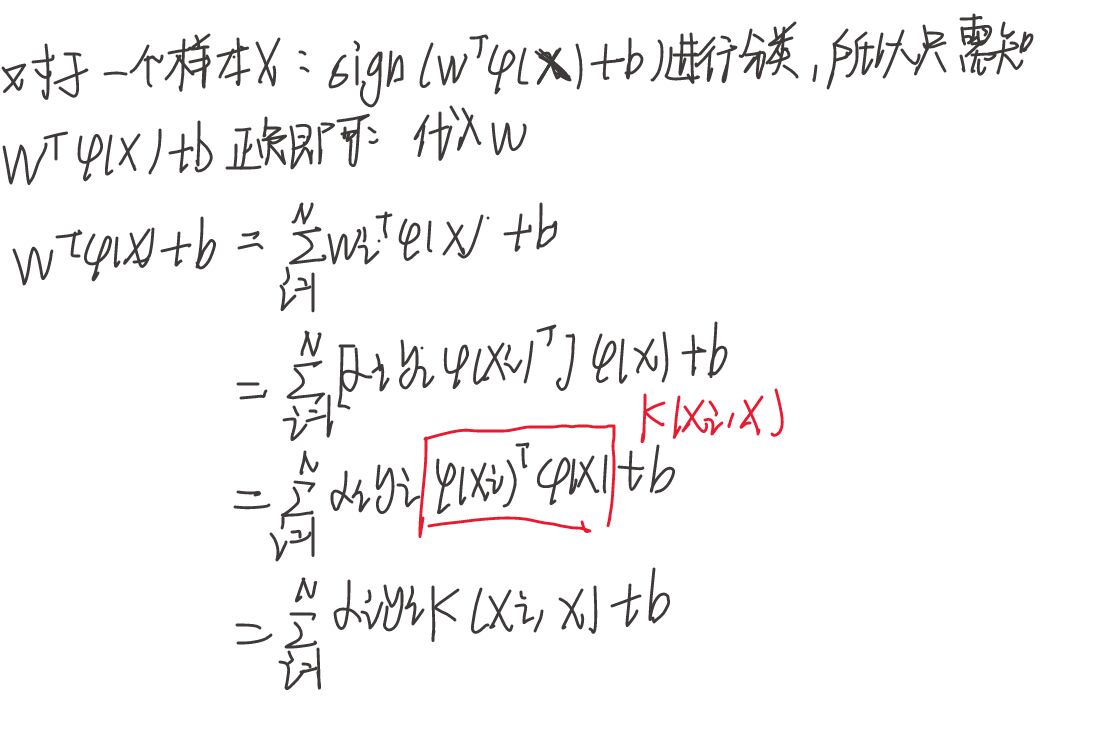 对于一个样本X：sign(w^Tφ(x)+b)进行分类，所以只需知
w^Tφ(x)+b 正负即可：代入w
w^Tφ(x)+b = \sum_{i=1}^{N} w_i^Tφ(x) + b
= \sum_{i=1}^{N} [α_i y_i φ(x_i)^T] φ(x) + b
K(x_i, x)
= \sum_{i=1}^{N} α_i y_i φ(x_i)^T φ(x) + b
= \sum_{i=1}^{N} α_i y_i K(x_i, x) + b